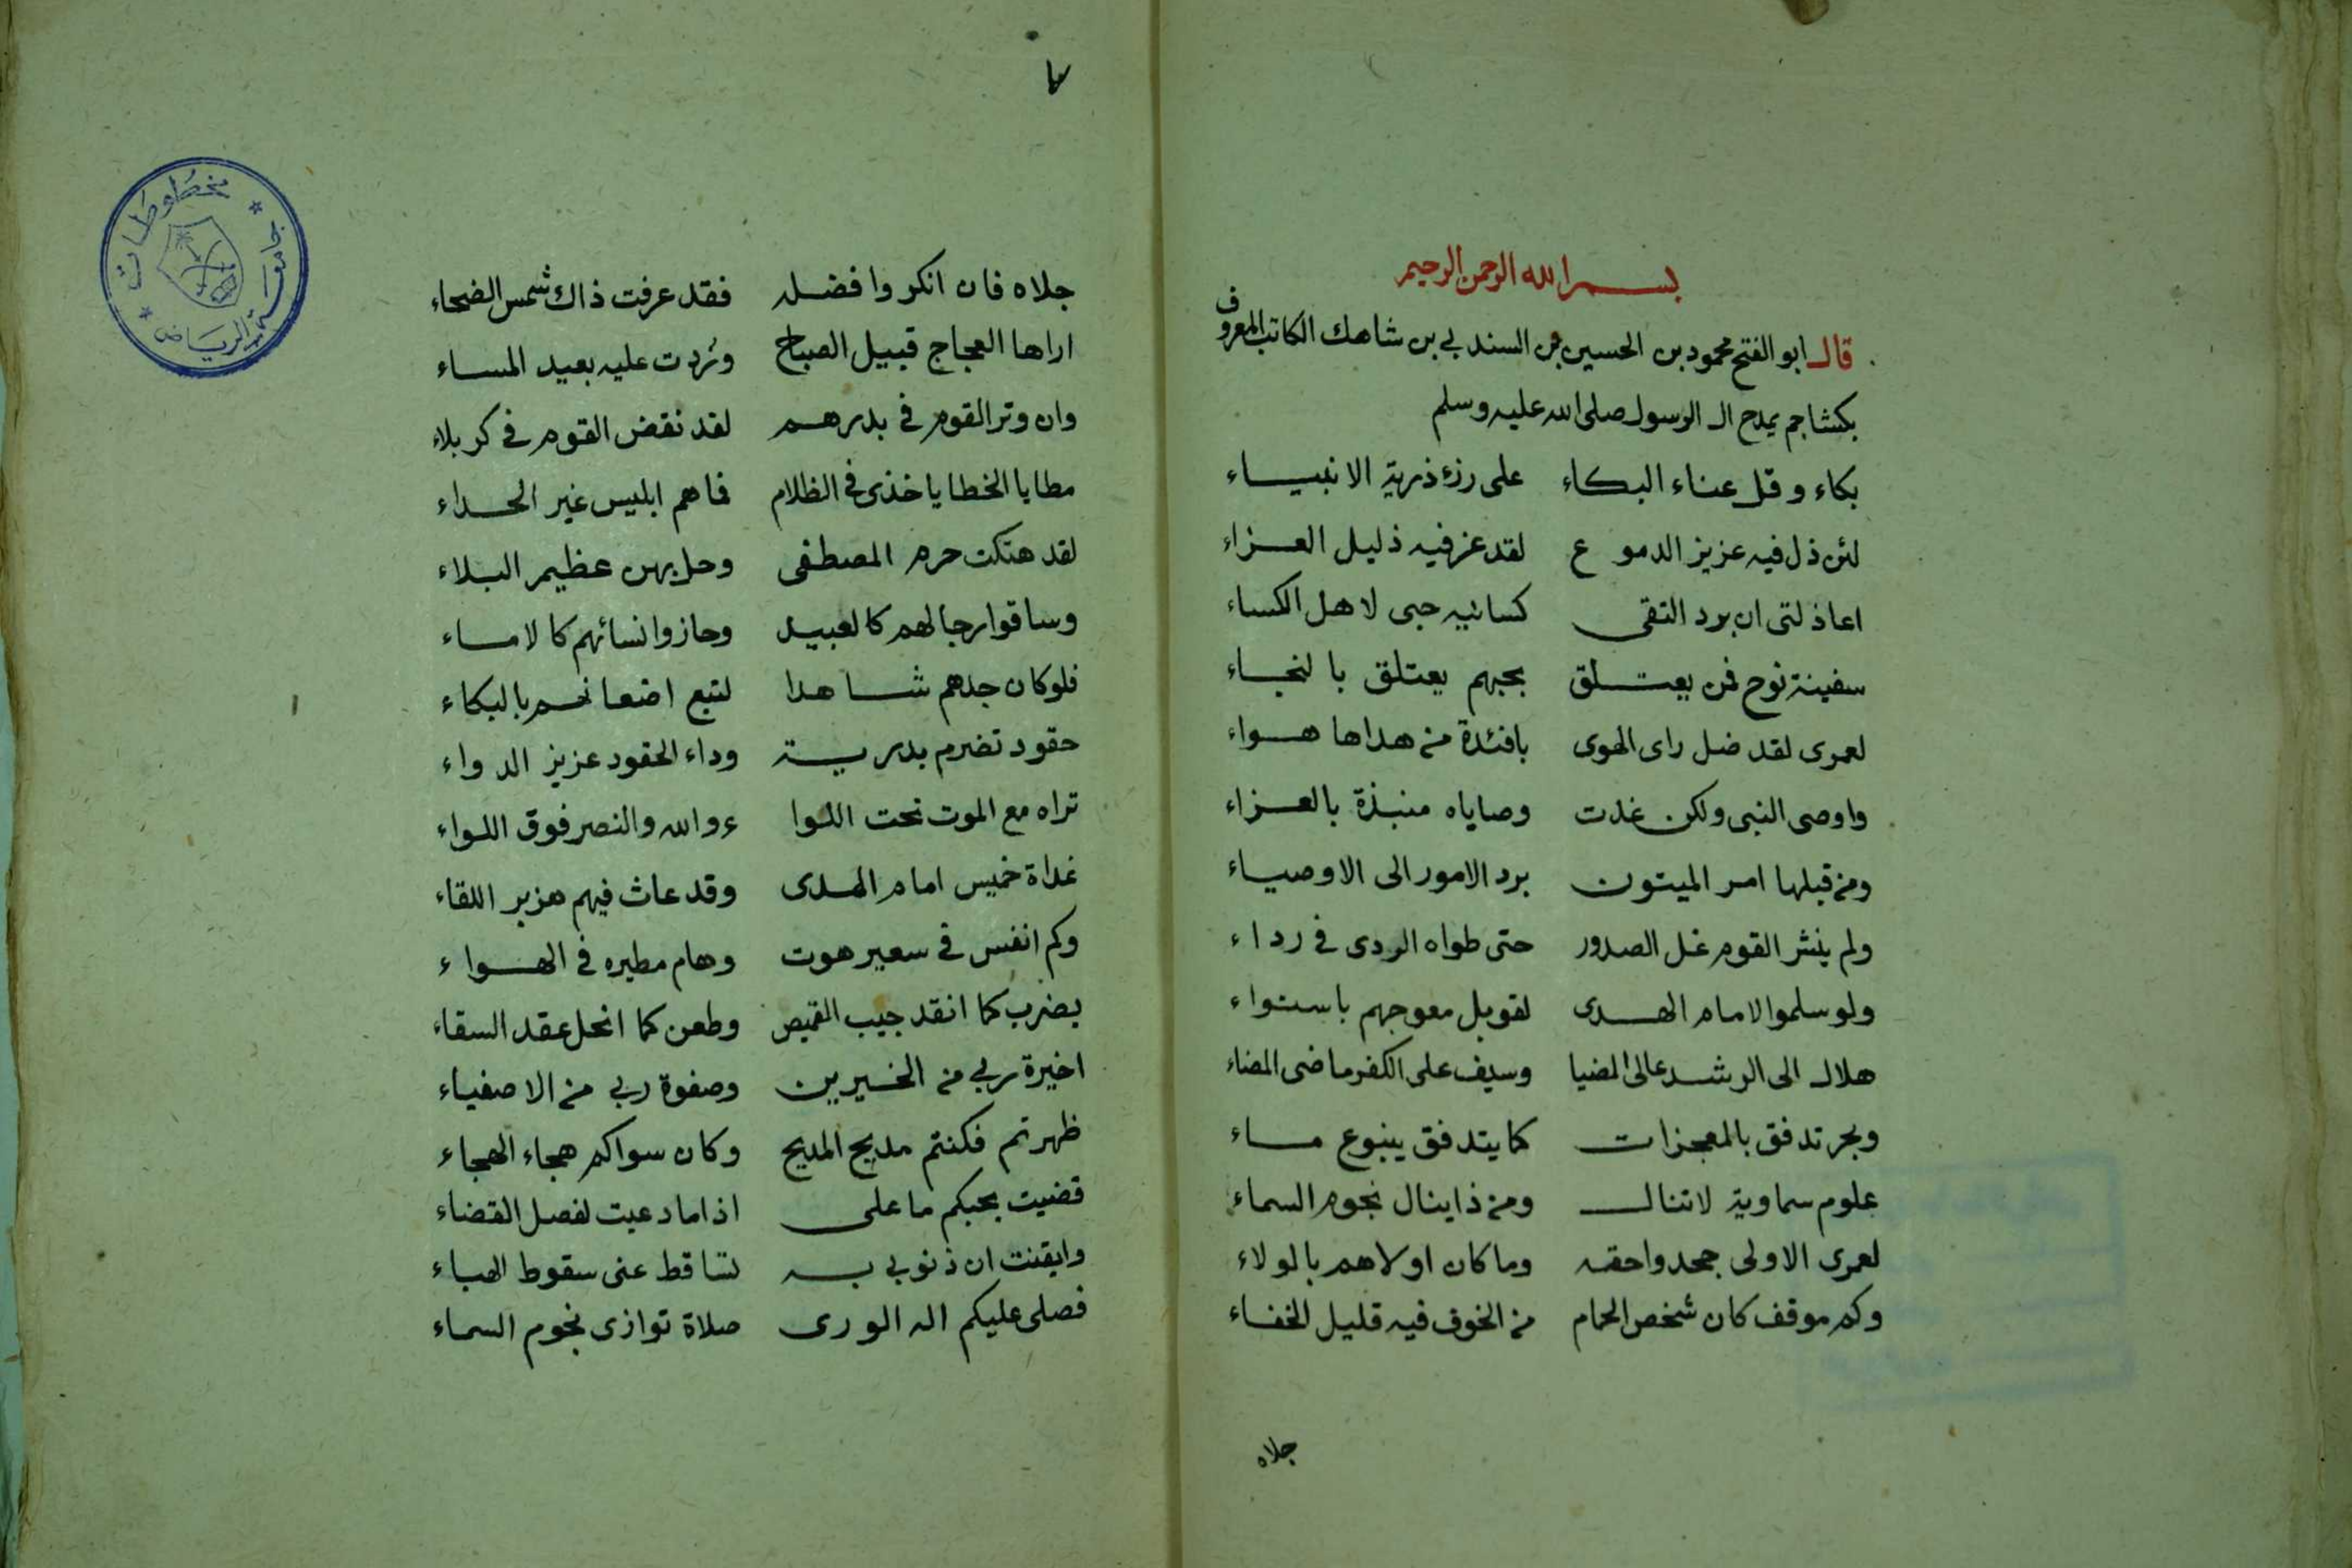 بسم الله الرحمن الرحيم
قال ابو الفتح محمود بن الحسين بن السندي بن شاهك الكاتب المعروف
بكشاجم يمدح ال الرسول صلى الله عليه وسلم
بكاء وقل عناء البكاء على رزء ذرية الانبياء
لئن ذل فيه عزيز الدموع لقد عز فيه ذليل العزاء
اعاذلتى ان برد التقى كسانيه حبى لاهل الكساء
سفينة نوح فمن يعتلق بحبهم يعتلق بالنجاء
لعمرى لقد ضل راى الهوى بافئدة من هداها هواء
واوصى النبى ولكن غدت وصاياه منبذة بالعزاء
ومن قبلها امر الميتون برد الامور الى الاوصياء
ولم ينشر القوم غل الصدور حتى طواه الردى في رداء
ولو سلموا لامام الهدى لقوبل معوجهم باستواء
هلال الى الرشد عالى الضيا وسيف على الكفر ماضى المضاء
وبحر تدفق بالمعجزات كما يتدفق ينبوع ماء
علوم سماوية لاتنال ومن ذا ينال نجوم السماء
لعمرى الاولى جحدوا حقه وما كان اولاهم بالولاء
وكم موقف كان شخص الحمام من الخوف فيه قليل الخفاء
جلاه
٧
جلاه فان انكروا فضله فقد عرفت ذاك شمس الضحاء
اراها العجاج قبيل الصباح وردت عليه بعيد المساء
وان وتر القوم في بدرهم لقد نقض القوم في كربلاء
مطايا الخطايا خذى في الظلام فما هم ابليس غير الحداء
لقد هتكت حرم المصطفى وحل بهن عظيم البلاء
وساقوا رجالهم كالعبيد وحازوا نسائهم كالاماء
فلو كان جدهم شاهدا لتبع اضعانهم بالبكاء
حقود تضرم بدرية وداء الحقود عزيز الدواء
تراه مع الموت تحت اللوا ء والله والنصر فوق اللواء
غداة خميس امام الهدى وقد عاث فيهم هزبر اللقاء
وكم انفس في سعير هوت وهام مطيره في الهواء
بضرب كما انقد جيب القميص وطعن كما انحل عقد السقاء
اخيرة ربي من الخيرين وصفوة ربي من الاصفياء
ظهرتم فكنتم مديح المديح وكان سواكم هجاء الهجاء
قضيت بحبكم ما على اذا ما دعيت لفصل القضاء
وايقنت ان ذنوبي به تساقط عنى سقوط الهباء
فصلى عليكم اله الورى صلاة توازى نجوم السماء
جامعة الرياض
مخطوطات